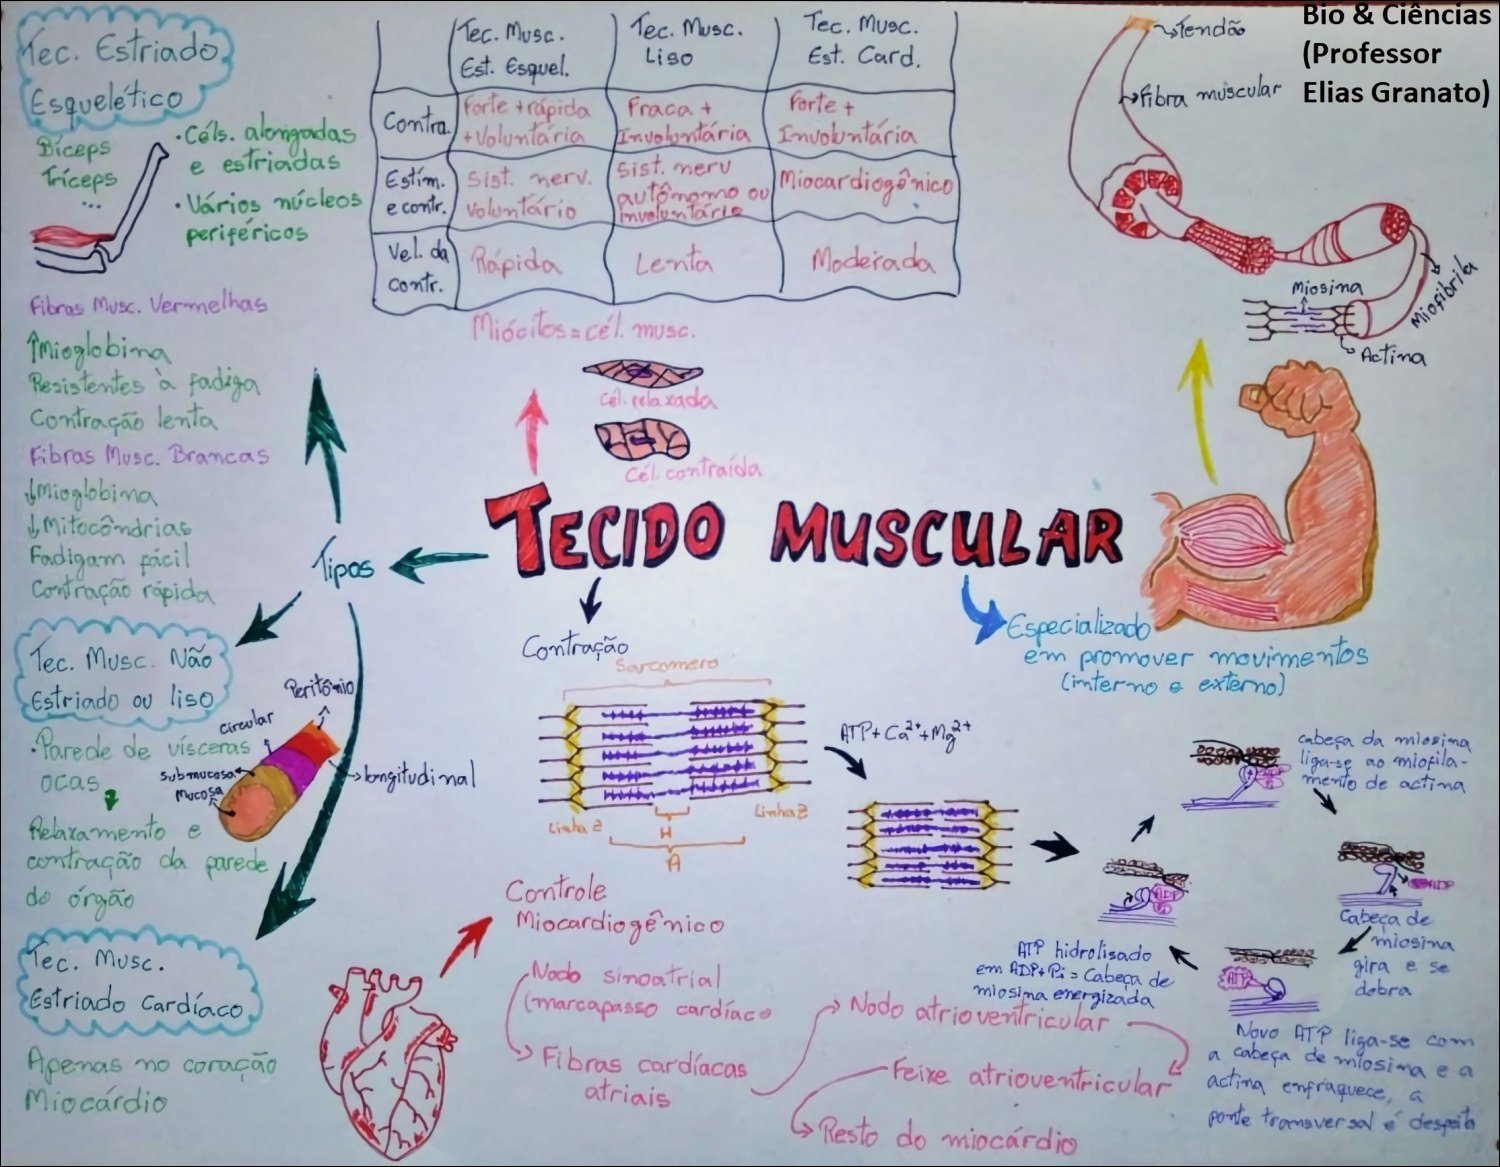 Bio & Ciências
(Professor
Elias Granato)
Tec. Estriado
Esquelético
Bíceps
Tríceps
...
• Céls. alongadas
e estriadas
• Vários núcleos
periféricos
Fibras Musc. Vermelhas
↑Mioglobina
Resistentes à fadiga
Contração lenta
Fibras Musc. Brancas
↓Mioglobina
↓Mitocôndrias
Fadigam fácil
Contração rápida
Tec. Musc.
Est. Esquel.
Tec. Musc.
Liso
Tec. Musc.
Est. Card.
Contra.
Forte + rápida
+ Voluntária
Fraca +
Involuntária
Forte +
Involuntária
Estím.
e contr.
Sist. nerv.
voluntário
Sist. nerv
autônomo ou
involuntário
Miocardiogênico
Vel. da
contr.
Rápida
Lenta
Moderada
Miócitos = cél. musc.
Cél. relaxada
Cél. contraída
Tendão
Fibra muscular
Miosina
Miofibrila
Actina
TECIDO MUSCULAR
Tipos
Contração
Especializado
em promover movimentos
(interno e externo)
Tec. Musc. Não
Estriado ou liso
• Parede de vísceras
ocas
Relaxamento e
contração da parede
do órgão
Peritônio
circular
submucosa
Mucosa
longitudinal
Sarcomero
Linha Z
H
A
Linha Z
ATP + Ca2+ + Mg2+
cabeça da miosina
liga-se ao miofila-
mento de actina
ADP
Pi
ADP
Cabeça de
miosina
gira e se
dobra
ATP
Novo ATP liga-se com
a cabeça de miosina e a
actina enfraquece, a
ponte transversal é despeita
ADP
Pi
ATP hidrolisado
em ADP+Pi = Cabeça de
miosina energizada
Tec. Musc.
Estriado Cardíaco
Apenas no coração
Miocárdio
Controle
Miocardiogênico
Nodo sinoatrial
(marcapasso cardíaco
Fibras cardíacas
atriais
Nodo atrioventricular
Feixe atrioventricular
Resto do miocárdio